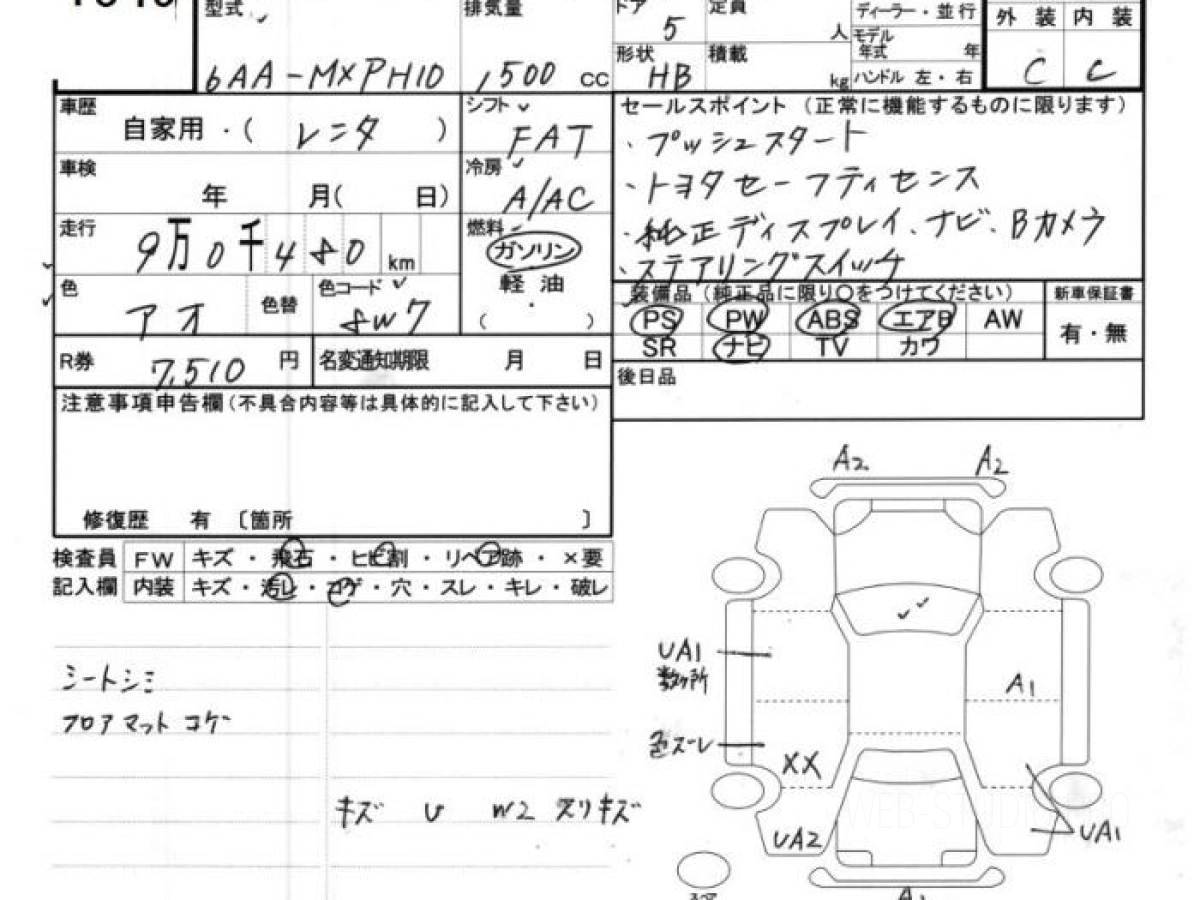 型式 排気量 ドア 定員 ディーラー・並行
5 人 モデル年式 年 外装 内装
6AA-MXPH10 1,500 cc 形状 HB 積載 kg ハンドル 左・右 C C
車歴 シフト セールスポイント (正常に機能するものに限ります)
自家用・( レンタ ) FAT ・プッシュスタート
車検 冷房
年 月( 日) A/AC ・トヨタセーフティセンス
走行 燃料
9万0千480 km ガソリン ・純正ディスプレイ、ナビ、Bカメラ
軽油 ・ステアリングスイッチ
色 色替 色コード 装備品 (純正品に限り○をつけてください) 新車保証書
アオ 8W7 ( ・ ) PS PW ABS エアB AW 有・無
SR ナビ TV カワ
R券 7,510 円 名変通知期限 月 日
後日品
注意事項申告欄(不具合内容等は具体的に記入して下さい)
修復歴 有 〔箇所 〕
A2 A2
検査員 FW キズ・飛石・ヒビ割・リペア跡・×要
記入欄 内装 キズ・汚レ・コゲ・穴・スレ・キレ・破レ
UA1
数ヶ所
シートシミ
A1
フロアマット コゲ
色ズーレ
XX
キズ U W2 スリキズ
WEB-STUDIO.PRO
UA2 UA1
A1